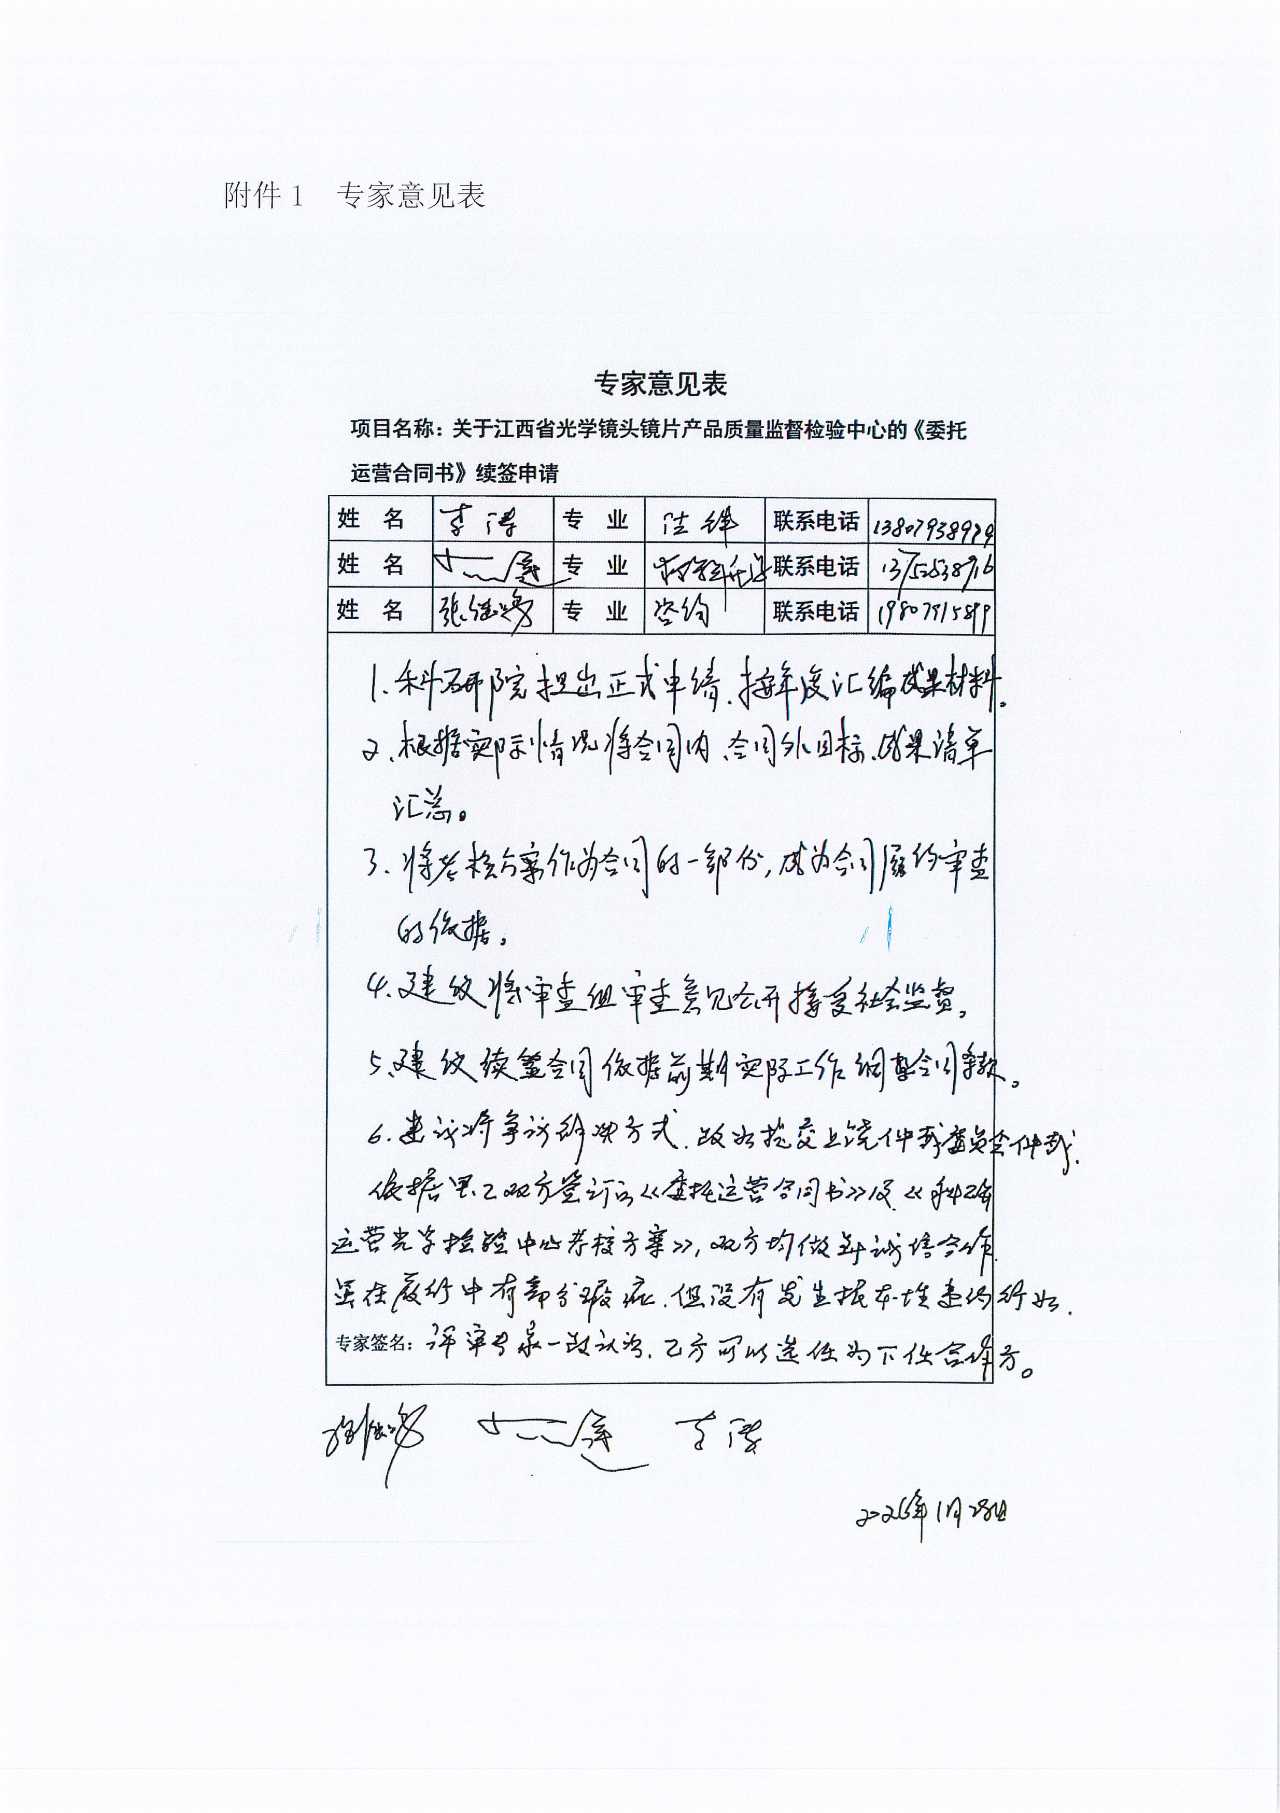 附件1 专家意见表
专家意见表
项目名称：关于江西省光学镜头镜片产品质量监督检验中心的《委托
运营合同书》续签申请
姓 名 李涛 专 业 法律 联系电话
姓 名 专 业 联系电话
姓 名 张继 专 业 咨询 联系电话
1.科研院提出正式申请、按年度汇编成果材料。
2、根据实际情况将合同内、合同外目标、成果清单
汇总。
3、将考核方案作为合同的一部份,成为合同履约审查
的依据。
4、建议将审查组审查意见公开接受社会监督。
5、建议续签合同依据前期实际工作调整合同条款。
6、建议将争议解决方式、改为提交上饶仲裁委员会仲裁.
依据甲乙双方签订的《委托运营合同书》及《科研
运营光学检验中心考核方案》,双方均做到诚信合作
虽在履行中有部分瑕疵、但没有发生根本性违约行为.
专家签名: 评审专家一致认为、乙方可以选任为下任合作方。
李涛
2026年1月28日